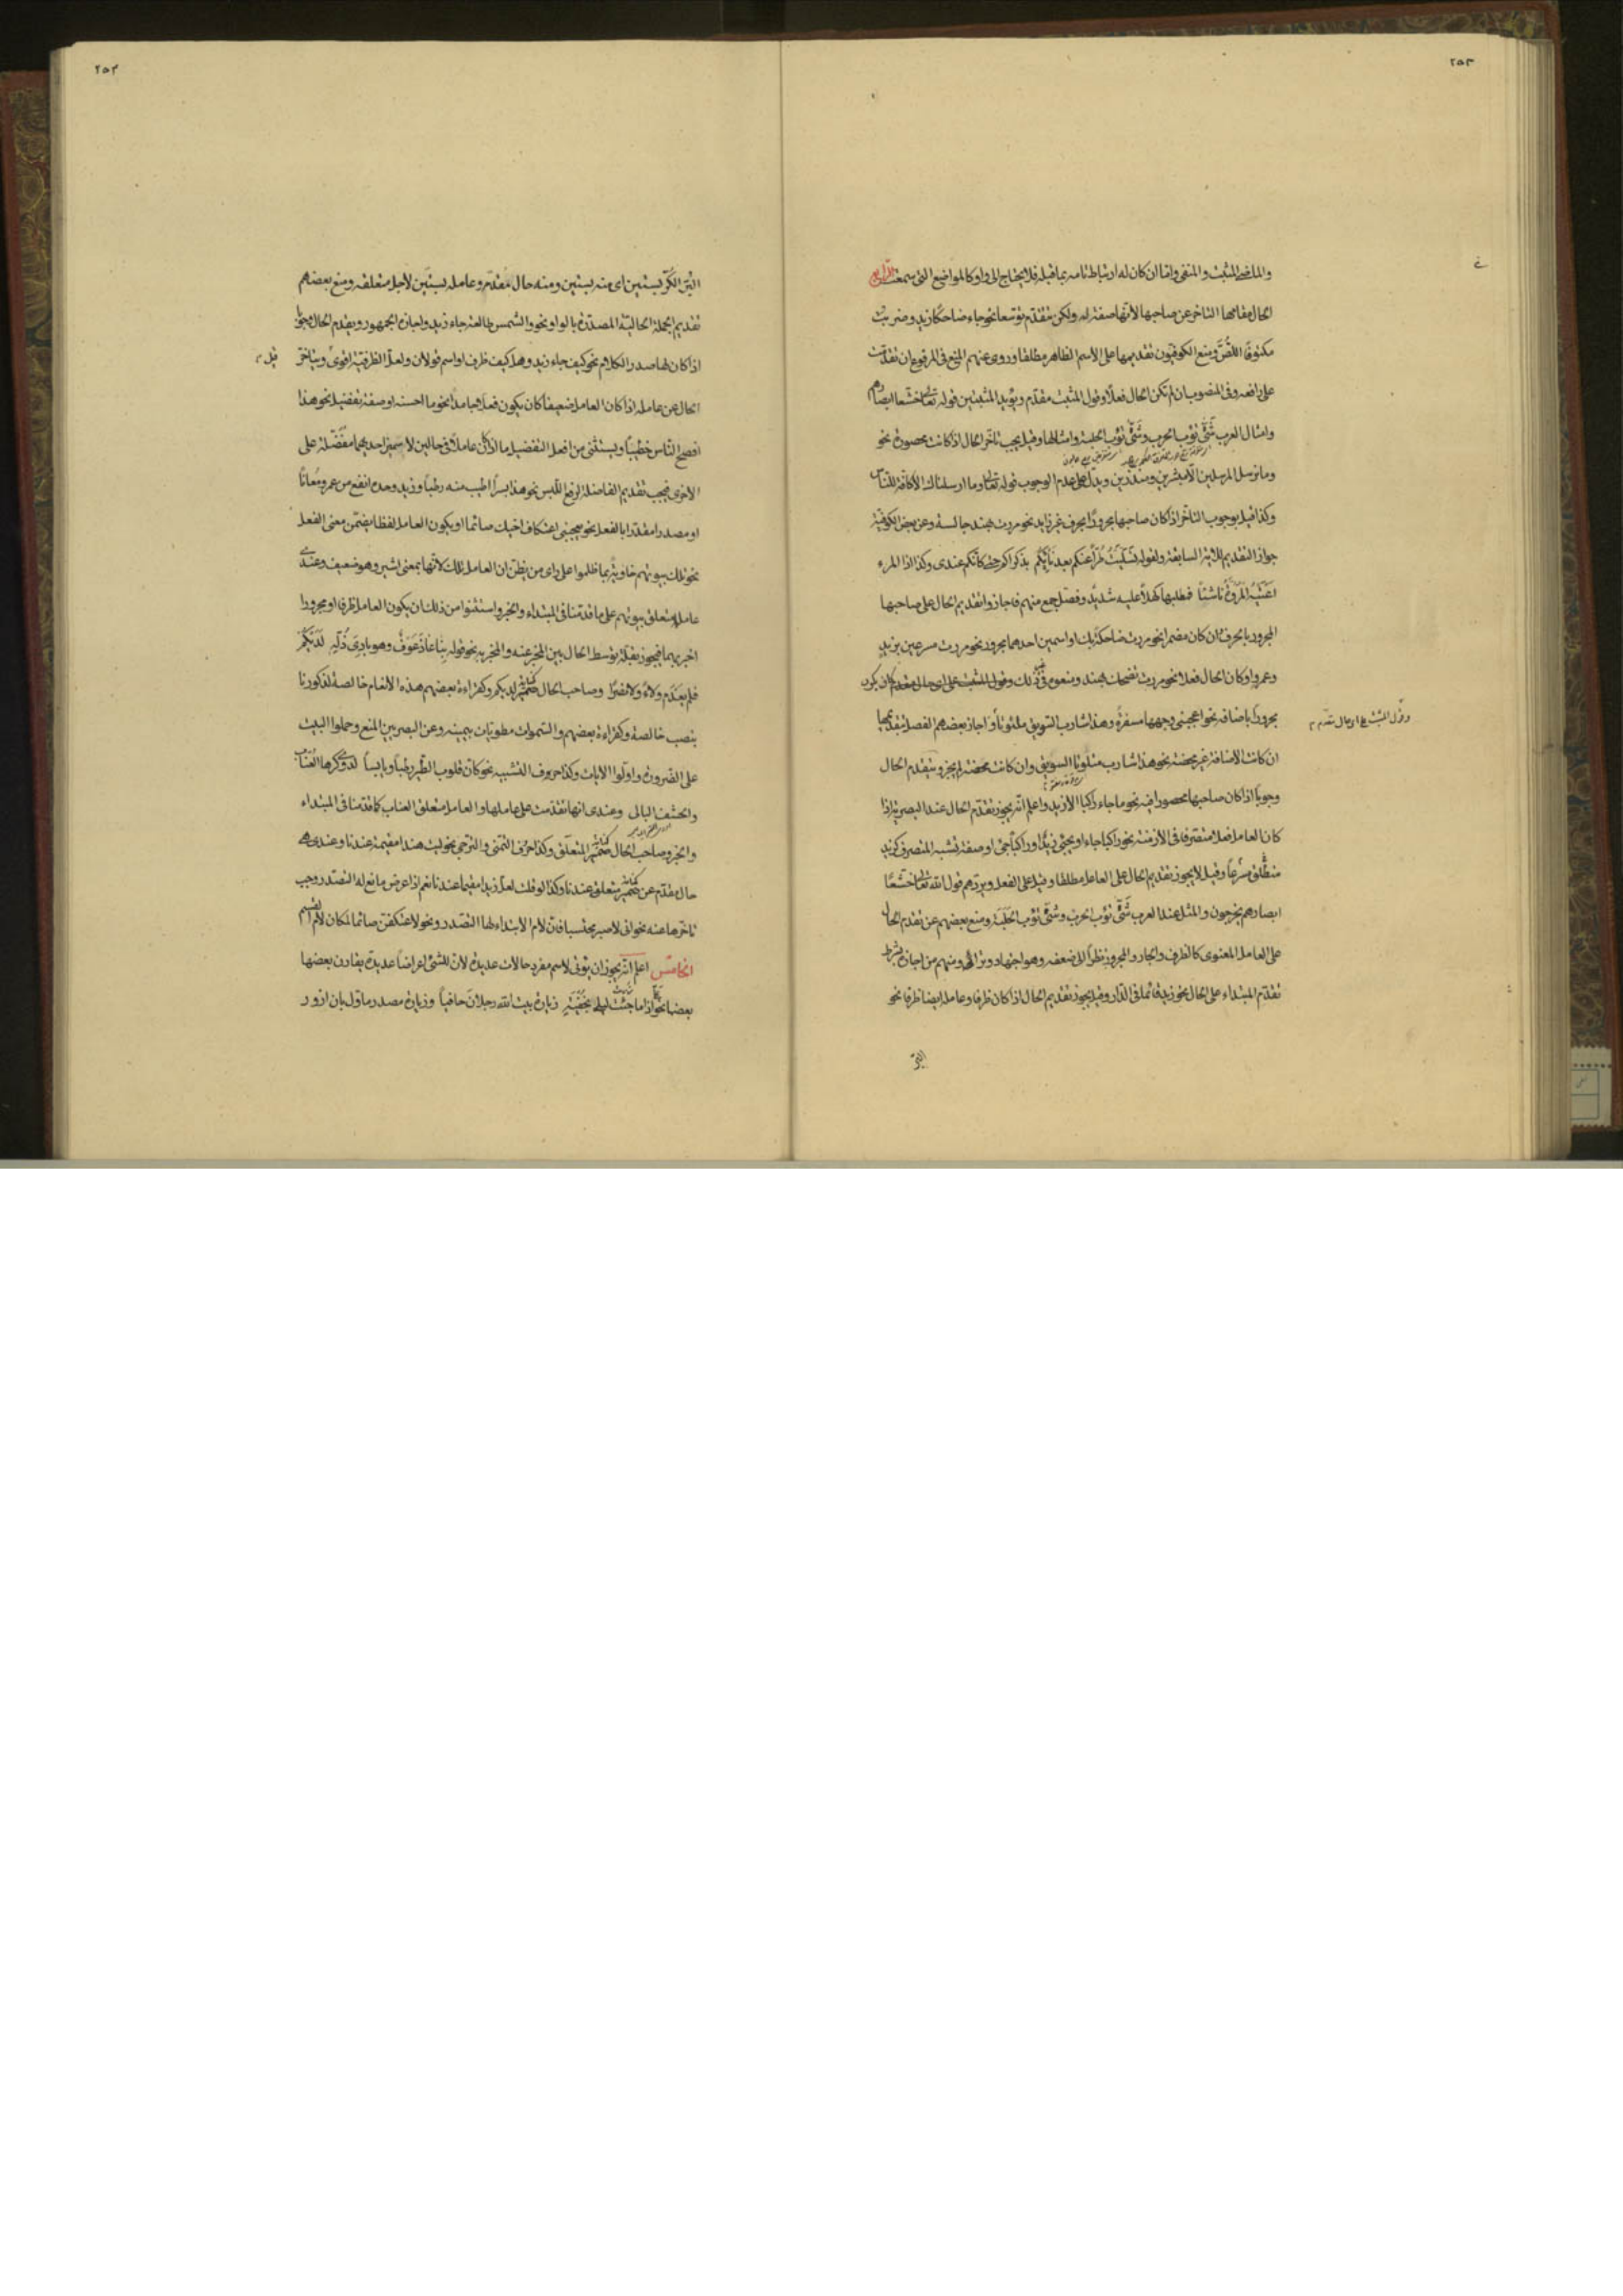 ٢٥٣
والماضي المثبت والمنفي واما ان كان له ارتباط تام بما قبله فلا يحتاج الى واو كالمواضع التي سمعت الرابع
الحال مقامها التاخر عن صاحبها لانها صفة له ولكن تتقدم توسعا نحو جاء ضاحكا زيد وضربت
مكتوفا اللص ومنع الكوفيون تقديمها على الاسم الظاهر مطلقا وروى عنهم المنع في المرفوع ان تقدمت
على رافعه وفي المنصوب ان لم تكن الحال فعلا وقول المثبت مقدم ويؤيد المثبتين قوله تعالى خشعا ابصارهم
وامثال العرب شتى تؤب الحرب وشتى تؤب الحلبة وامثالها وقيل يجب تاخر الحال اذا كانت محصورة نحو
وما نرسل المرسلين الا مبشرين ومنذرين ويدل على عدم الوجوب قوله تعالى وما ارسلناك الا كافة للناس
وكذا قيل بوجوب التاخر اذا كان صاحبها مجرورا بحرف غير زايد نحو مررت بهند جالسة وعن بعض الكوفية
جواز التقديم للاية السابقة ولقوله تسليت طرا عنكم بعد نايكم بذكراكم حتى كانكم عندى وكذا اذا المرء
اعيته المروة ناشئا فطلبها كهلا عليه شديد وفصل جمع منهم فاجازوا تقديم الحال على صاحبها
المجرور بالحرف ان كان مضمرا نحو مررت ضاحكة بك او اسمين احدهما مجرور نحو مررت مسرعين بزيد
وعمرو او كان الحال فعلا نحو مررت تضحك بهند ومنعوه في غير ذلك وقول المثبت على اى حال مقدم كان يكون
مجرورا باضافة نحو اعجبنى وجهها مسفرة وهذا شارب السويق ملتوتا واجاز بعضهم الفصل بتقديمها
وقول المثبت على اى حال مقدم
ان كانت الاضافة غير محضة نحو هذا شارب ملتوتا السويق وان كانت محضة لم يجز وتتقدم الحال
وجوبا اذا كان صاحبها محصورا فيه نحو ما جاء راكبا الا زيد واعلم انه يجوز تقدم الحال عند البصرية اذا
كان العامل فعلا متصرفا في الازمنة نحو راكبا جاء او يجئ زيد او راكبا جئ او صفة تشبه المتصرف كزيد
منطلق مسرعا وقيل لا يجوز تقديم الحال على العامل مطلقا وقيل على الفعل ويردهم قول الله تعالى خشعا
ابصارهم يخرجون والمثل عند العرب شتى تؤب الحرب وشتى تؤب الحلبة ومنع بعضهم عن تقدم الحال
على العامل المعنوى كالظرف والجار والمجرور نظرا الى ضعفه وهو اجتهاد وبراى ومنهم من اجازه بشرط
تقدم المبتداء على الحال نحو زيد قائما في الدار وقيل يجوز تقديم الحال اذا كان ظرفا وعامله ايضا ظرفا نحو
البر
٢٥٣
البر الكر بستين اى منه بستين ومنه حال مقدم وعامله بستين لاجل متعلقه ومنع بعضهم
تقديم الجملة الحالية المصدرة بالواو نحو والشمس طالعة جاء زيد واجازه الجمهور ويقدم الحال وجوبا
اذا كان لها صدر الكلام نحو كيف جاء زيد وهل كيف ظرف او اسم قولان ولعل الظرفية اقوى ويتاخر
الحال عن عامله اذا كان العامل ضعيفا كان يكون فعلا جامدا نحو ما احسنه او صفة تفضيل نحو هذا
افصح الناس خطيبا ويستثنى من افعل التفضيل ما اذا كان عاملا في حالين لاسمين احديهما مفضلة على
الاخرى فيجب تقديم الفاضلة لرفع اللبس نحو هذا بسرا اطيب منه رطبا وزيد وحده انفع من عمرو معانا
او مصدرا مقدرا بالفعل نحو يعجبنى اعتكاف اخيك صائما او يكون العامل لفظا يضمن معنى الفعل
نحو تلك بيوتهم خاوية بما ظلموا على راى من يظن ان العامل تلك لانها بمعنى اشير وهو ضعيف وعندى
عامله متعلق بيوتهم على ما قدمنا في المبتداء والخبر واستثنوا من ذلك ان يكون العامل ظرفا او مجرورا
اخبر بهما فيجوز بقلة توسط الحال بين المخبر عنه والمخبر به نحو قوله بنا عاذ عوف وهو بادى ذلة لديكم
فلم يعدم ولاء ولا نصرا وصاحب الحال ضمير لديكم وكقراءة بعضهم هذه الانعام خالصة لذكورنا
بنصب خالصة وكقراءة بعضهم والسموات مطويات بيمينه وعن البصريين المنع وحملوا البيت
على الضرورة واولوا الايات وكذا حروف التشبيه نحو كان قلوب الطير رطبا ويابسا لدى وكرها العناب
والحشف البالى وعندى انها تقدمت على عاملها والعامل متعلق العناب كما قدمنا في المبتداء
والخبر وصاحب الحال ضمير المتعلق وكذا حرف التمنى والترجى نحو ليت هندا مقيمة عندنا وعندى هى
حال مقدم عن ضمير متعلق عندنا وكذا لو قلت لعل زيدا مقيما عندنا نعم اذا عرض مانع له التصدر وجب
تاخرها عنه نحو انى لاصبر محتسبا فان لام الابتداء لها التصدر ونحو لاعتكفن صائما لمكان لام القسم
الخامس اعلم انه يجوز ان يؤتى لاسم مفرد حالات عديدة لان للشئ اعراضا عديدة يقارن بعضها
بعضا نحو اذا ما جئت ليلى بخفية زيارة بيت الله رجلان حافيا وزيارة مصدر ماول بان ازور